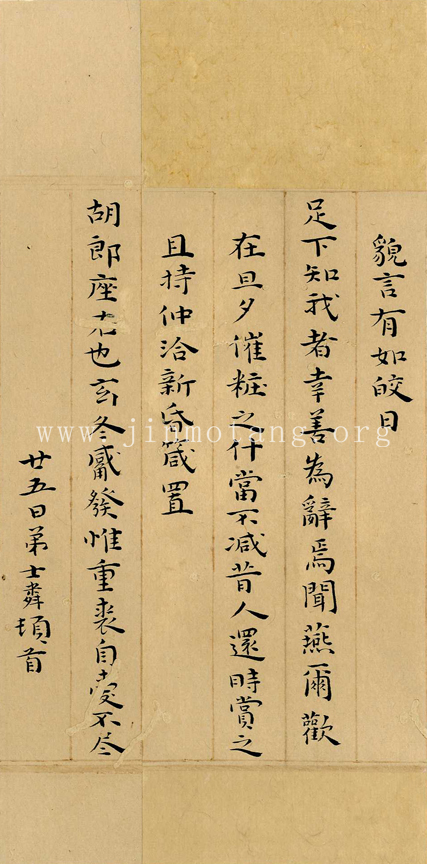 貌言有如皎日
足下知我者幸善為辭焉聞燕爾歡
在旦夕催粧之什當不減昔人還時賞之
且持仲洽新昏箴置
胡郎座右也玄冬觱發惟重裘自愛不盡
廿五日弟士粦頓首
www.jinmotang.org